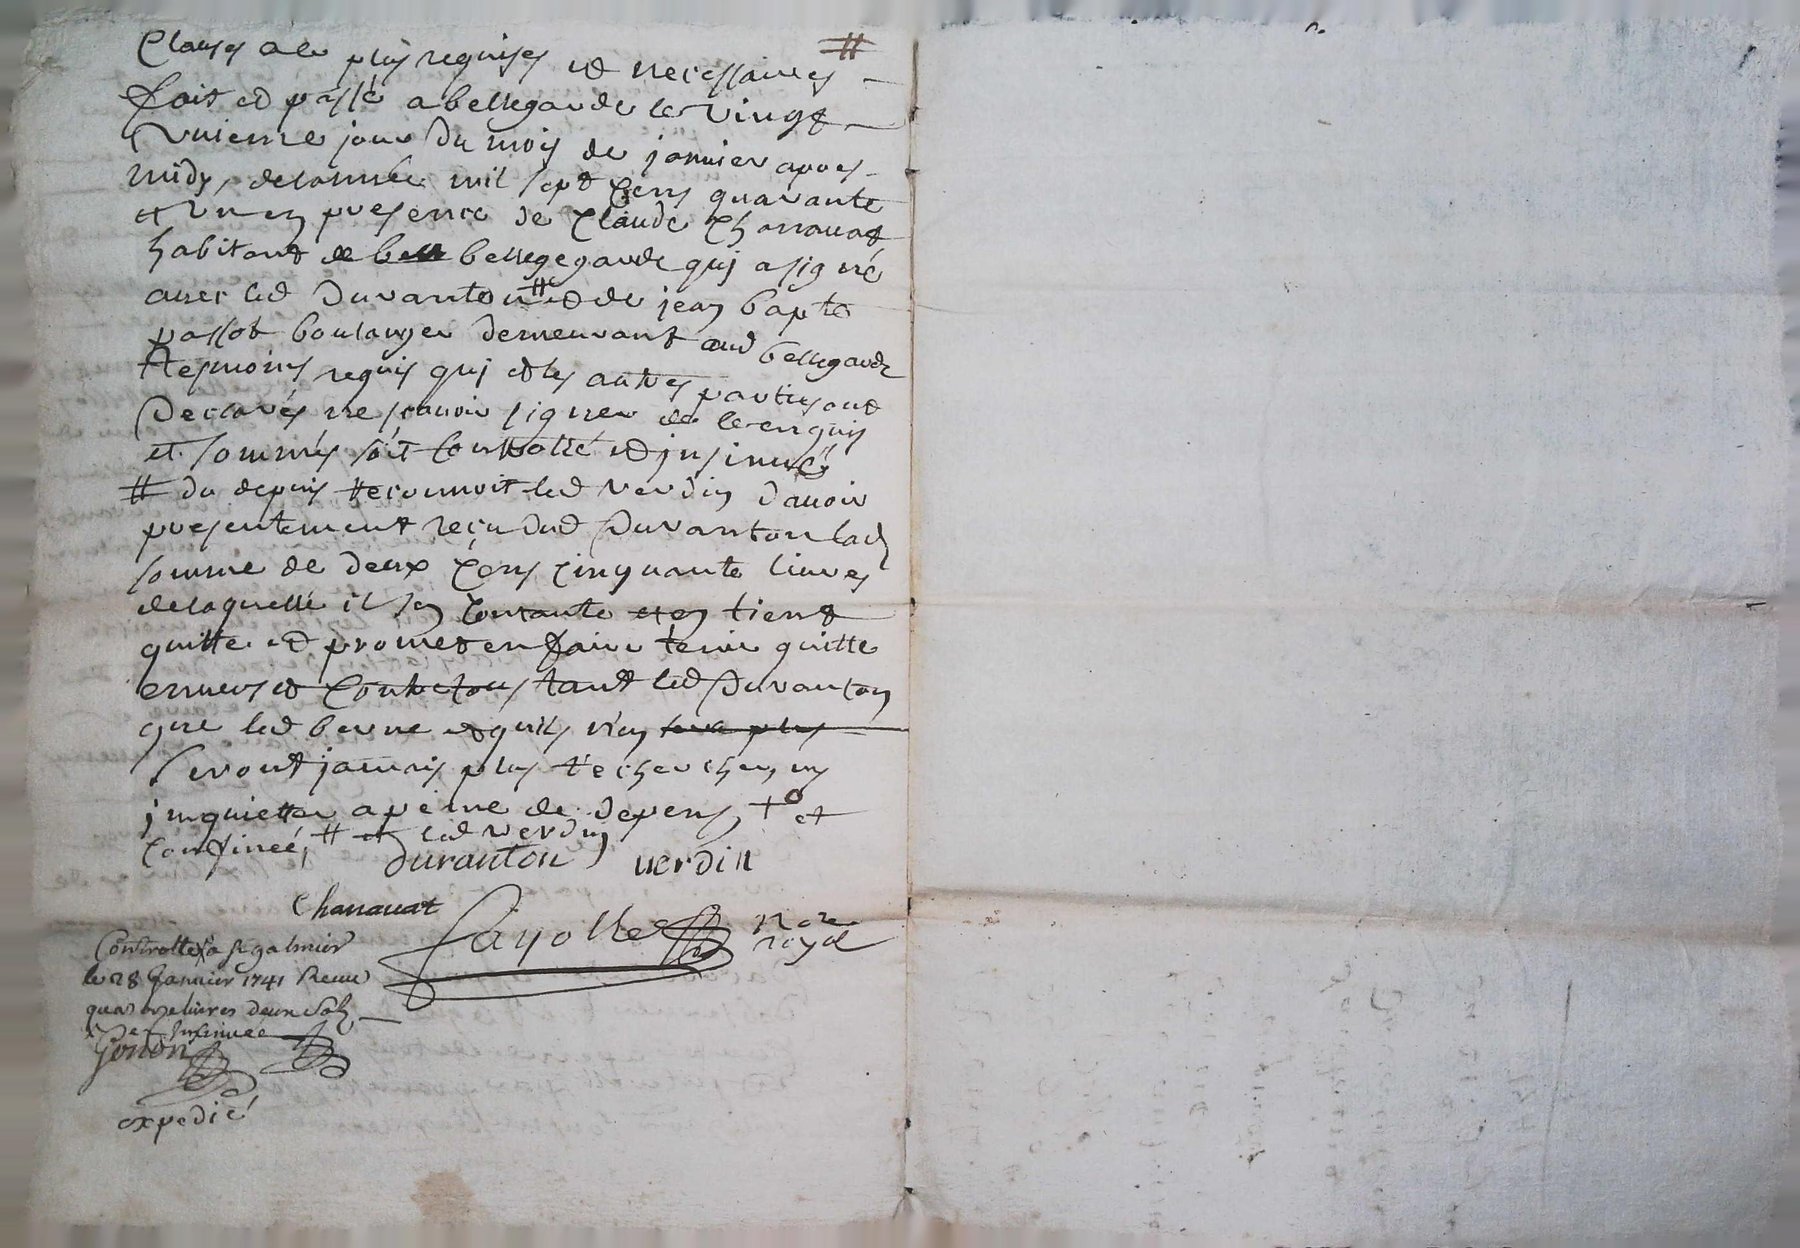 Clauses a ce plus requises et necessaires #
fait et passé a bellegarde le vingt
unieme jour du mois de janvier apres
midy, de lannée mil sept cens quarante
et un en presence de Claude Chanavat
habitant de bell bellegegarde qui a signé
avec led Duranton # et de jean bapte
passot boulanger demeurant aud bellegarde
tesmoins requis qui et les autres parties ont
declarés ne scavoir signer de ce enquis
et sommés soit controllé et insinué
# du depuis reconnoit led verdin davoir
presentement reçu dud Duranton lad
somme de deux cens cinquante livres
de laquelle il sen contante et en tient
quitte et promet en faire tenir quitte
envers et contre tous tant led Duranton
que led berne et quils nen sera plus
seront jamais plus recherchés ny
inquietter a peine de depens +o et
confineé, # et led verdin
Duranton verdin
Chanavat
Fayolle Nore
royal
Controllé a St galmier
le 28 Janvier 1741 Receu
quatorze livres deux Sols
et Insinué
Gonon
expedié